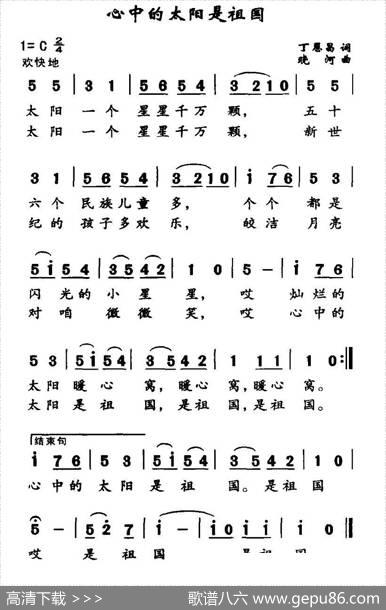 心中的太阳是祖国
1=C 2/4
丁恩昌 词
欢快地
晓 河 曲
5 5 | 3 1 | 5 6 5 4 | 3 2 1 0 | 5 5 |
太 阳 一 个 星星千万 颗， 五 十
太 阳 一 个 星星千万 颗， 新 世
3 1 | 5 6 5 4 | 3 2 1 0 | i 7 6 | 5 3 |
六 个 民族儿童 多， 个 个 都 是
纪 的 孩子多欢 乐， 皎 洁 月 亮
5 i 5 4 | 3 5 4 2 | 1 0 | 5 - | i 7 6 |
闪光的 小 星 星， 哎 灿烂的
对 咱 微 微 笑， 哎 心中的
5 3 | 5 i 5 4 | 3 5 4 2 | 1 1 1 | 1 0 :‖
太 阳 暖 心 窝，暖心 窝，暖心 窝。
太 阳 是 祖 国，是祖 国，是祖 国。
结束句
i 7 6 | 5 3 | 5 i 5 4 | 3 5 4 2 | 1 0 |
心中的 太 阳 是 祖 国。是 祖 国
5 - | 5 2 7 | i - | i 0 i i | i 0 ‖
哎 是 祖 国
高清下载 >>>
歌谱八六 www.gepu86.com